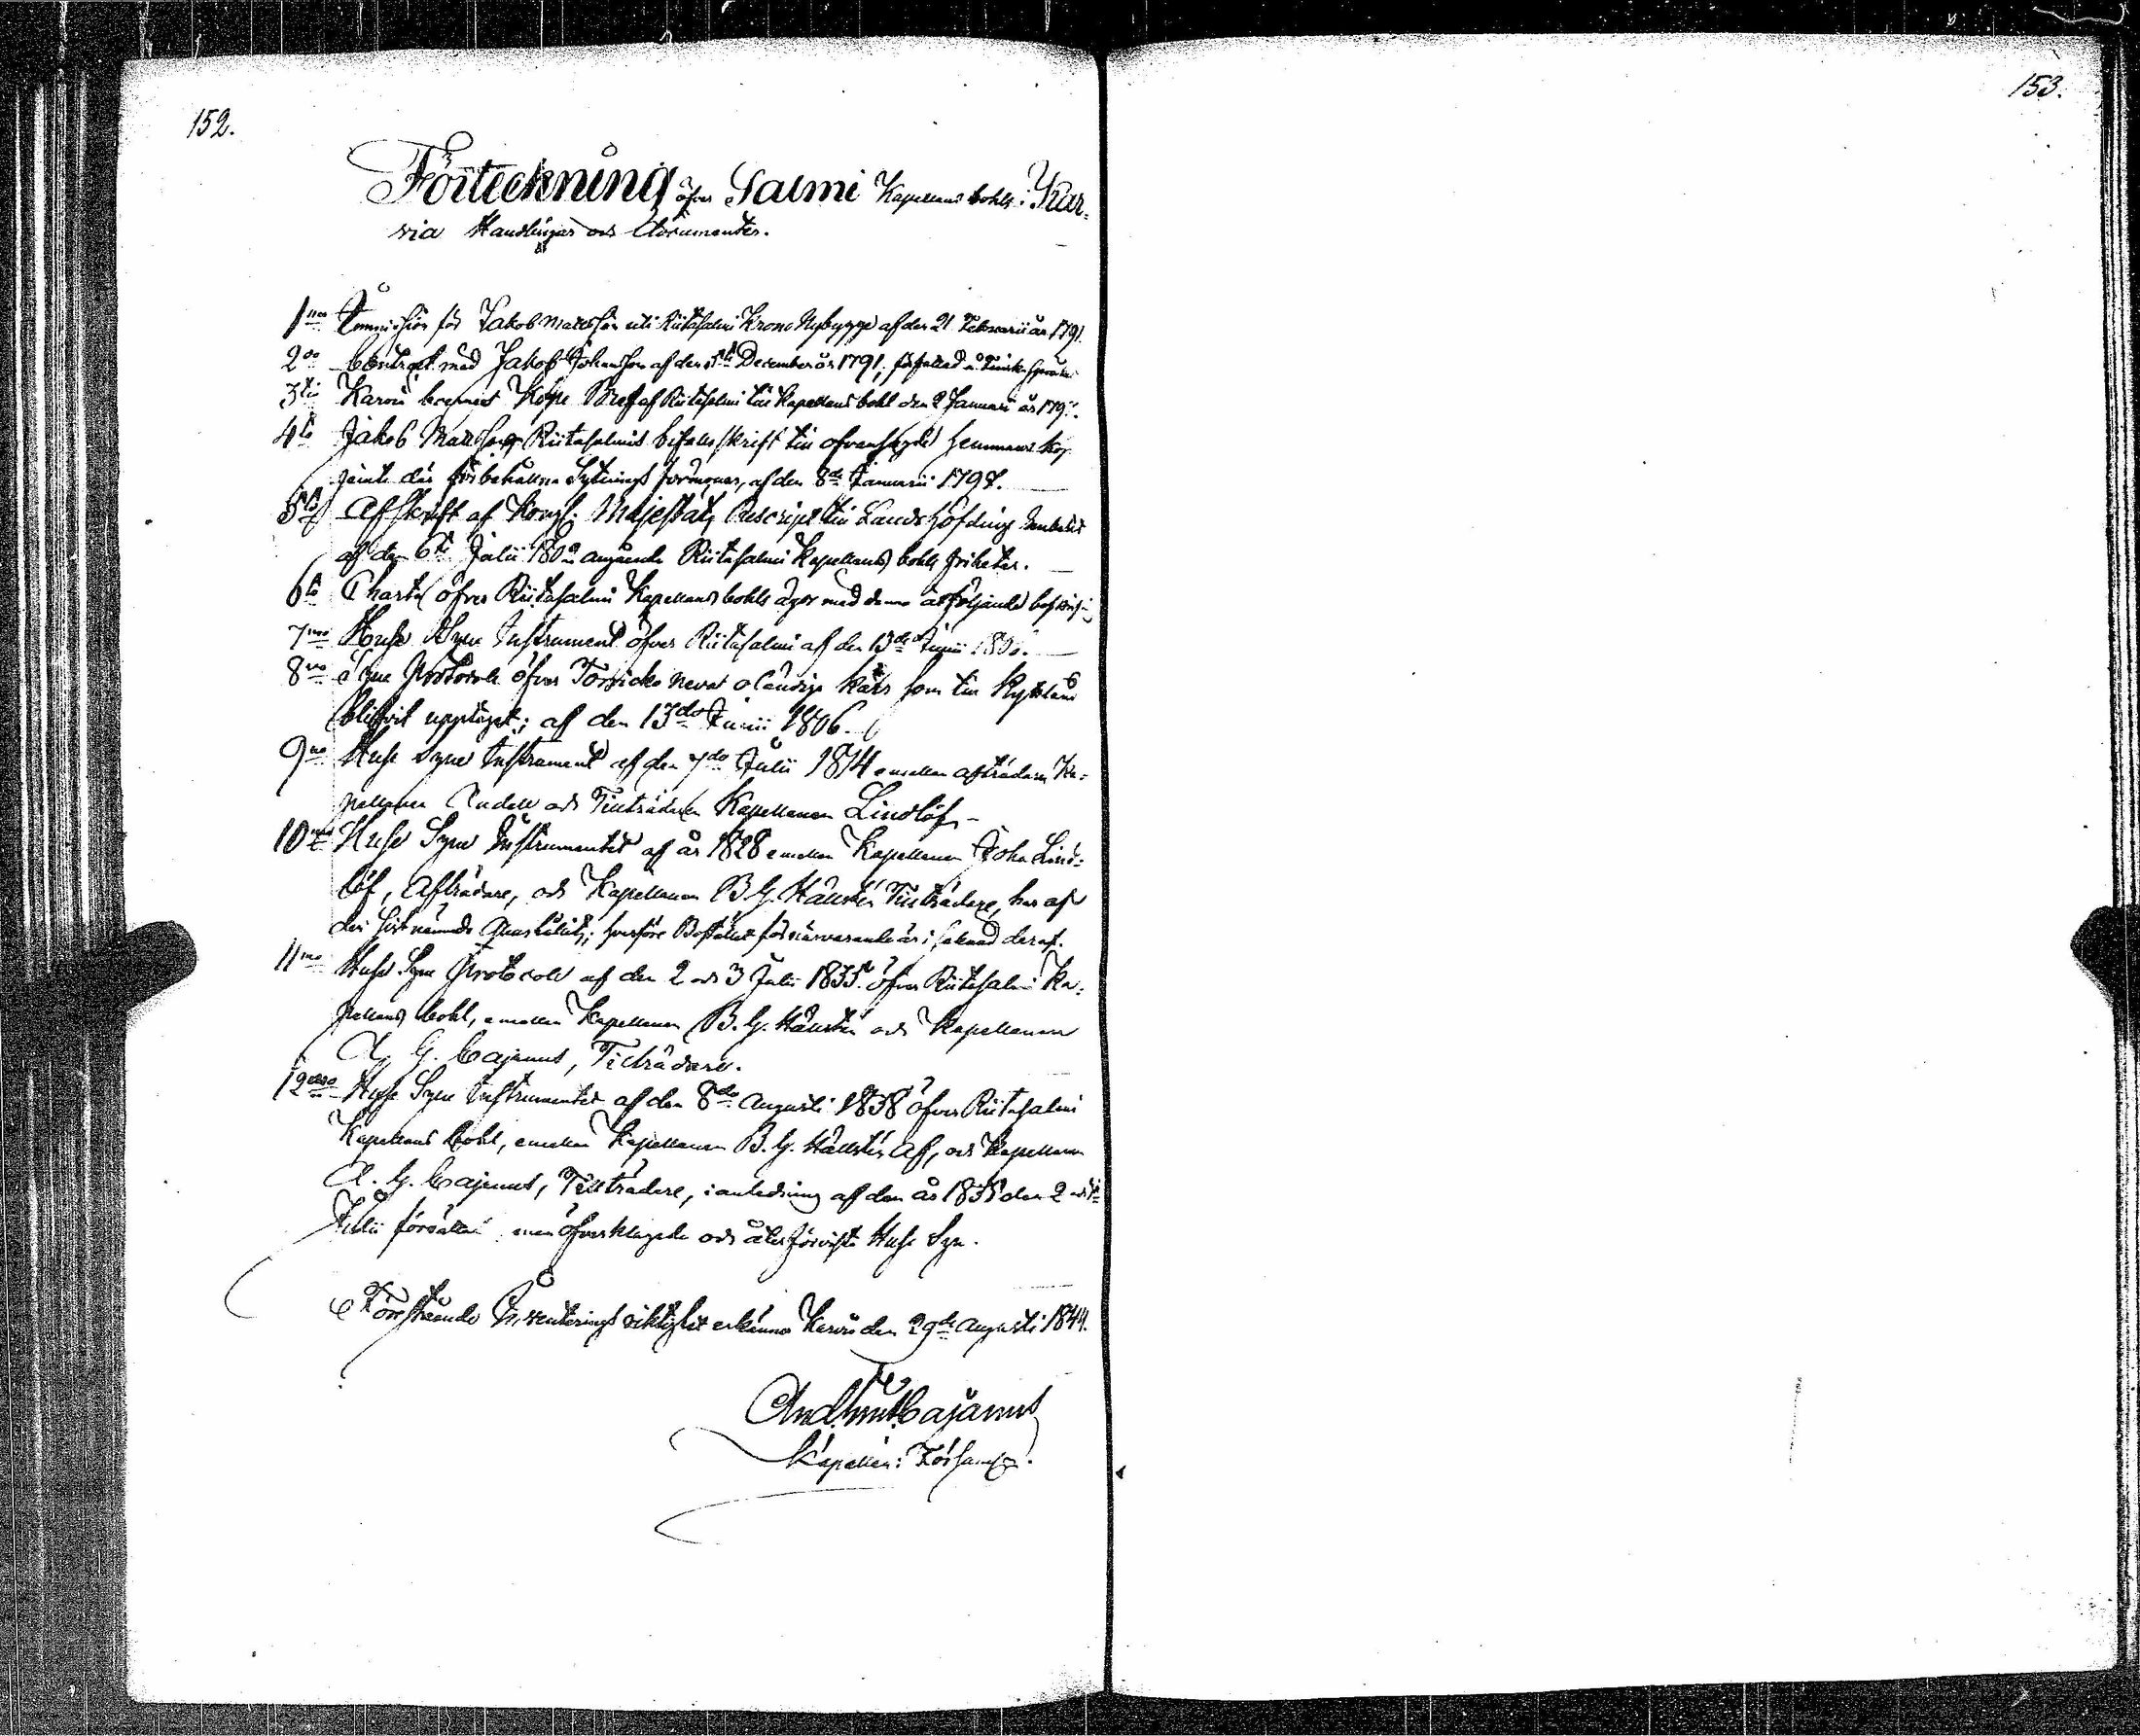 152.
153.
Förteckning öfver Salmi Kapellans bohls i Kar-
via Handlingar och Documenter.
1mo Immission för Jakob Mattsson uti Riitasalmi Krono Nybygge af den 21 Februarii år 1791.
2do Contract med Jakob Johansson af den December år 1791; författad å Finska Språket
3tio Karvia Köpe Bref af Riitasalmi till Kapellans bohl den 2 Januarii år
4to Jakob Mattsson Riitasalmis bifalls skrift till ofvansagde Hemmans köp
jemte där förbehållna Sytnings förmoner, af den 8de Januarii 1797.
5to Afskrift af Kongl. Majestäts Rescript till Landshöfdinge Embetet
af den 6te Julii 1802 angående Riitasalmi Kapellans bohls friheter.
6to Charta öfver Riitasalmi Kapellans bohls ägor med denne åtföljande
7mo Huse Syne Instrument öfver Riitasalmi af den 13de Junii
8vo Syne Protocoll öfver neva oländiga kärr som till Kyttland
blifvit upptaget; af den 13de Junii 1806.
9no Huse Syne Instrument af den 7de Julii 1814 emellan afträdaren Ka-
pellanen och Tillträdaren Kapellanen Lindlöf.
10mo Huse Syne Instrumentet af år 1828 emellan Kapellanen Joh. Lind-
löf, Afträdare, och Kapellanen B. G. Hällsten Tillträdare, har af
den sistnämnde hvarföre Bostället för närvarande är i saknad deraf.
11mo Huse Syne Protocoll af den 2 och 3 Julii 1835 öfver Riitasalmi Ka-
pellans bohl, emellan Kapellanen B. G. Hällsten och Kapellanen
A. G. Cajanus, Tillträdare.
12mo Huse Syne Instrumentet af den 8de Augusti 1838 öfver Riitasalmi
Kapellans bohl, emellan Kapellanen B. G. Hällsten Af, och Kapellanen
A. G. Cajanus, Tillträdare, i anledning af den år 1835 den 2 och 3
Julii förrättade men öfverklagade och återförvista Huse Syn.
Förestående Inventerings riktighet erkännes Karvia den 29de Augusti 1844.
And. Gust. Cajanus
Kapellan i Församl.